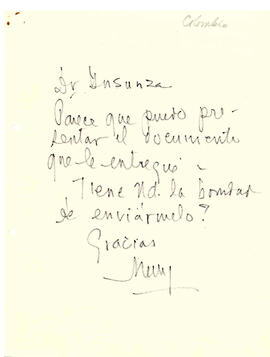 Colombia
Dr Insunza
Parece que puedo pre-
sentar el documento
que le entregué -
Tiene Ud. la bondad
de enviármelo?
Gracias